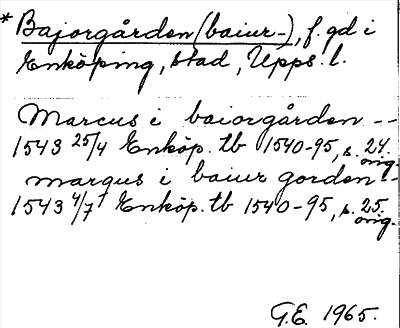 * Bajorgården (baiur-), f. gd i
Enköping, stad, Upps. l.
Marcus i baiorgården --
1543 25/4 Enköp. tb 1540-95, s. 24. orig.
marqus i baiur gorden --
1543 4/7 Enköp. tb 1540-95, s. 25. orig.
G.E. 1965.